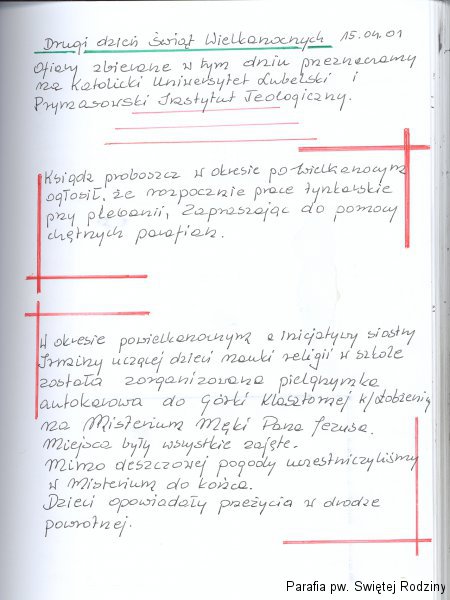 Drugi dzień Świąt Wielkanocnych 15.04.01
Ofiary zbierane w tym dniu przeznaczamy
na Katolicki Uniwersytet Lubelski i
Prymasowski Instytut Teologiczny.
Ksiądz proboszcz w okresie po-wielkanocnym
ogłosił, że rozpocznie prace tynkarskie
przy plebanii, Zapraszając do pomocy
chętnych parafian.
W okresie powielkanocnym z inicjatywy siostry
Irminy uczącej dzieci nauki religii w szkole
została zorganizowana pielgrzymka
autokarowa do Górki Klasztornej k/Łobżenicy
na Misterium Męki Pana Jezusa.
Miejsca były wszystkie zajęte.
Mimo deszczowej pogody uczestniczyliśmy
w Misterium do końca.
Dzieci opowiadały przeżycia w drodze
powrotnej.
Parafia pw. Świętej Rodziny